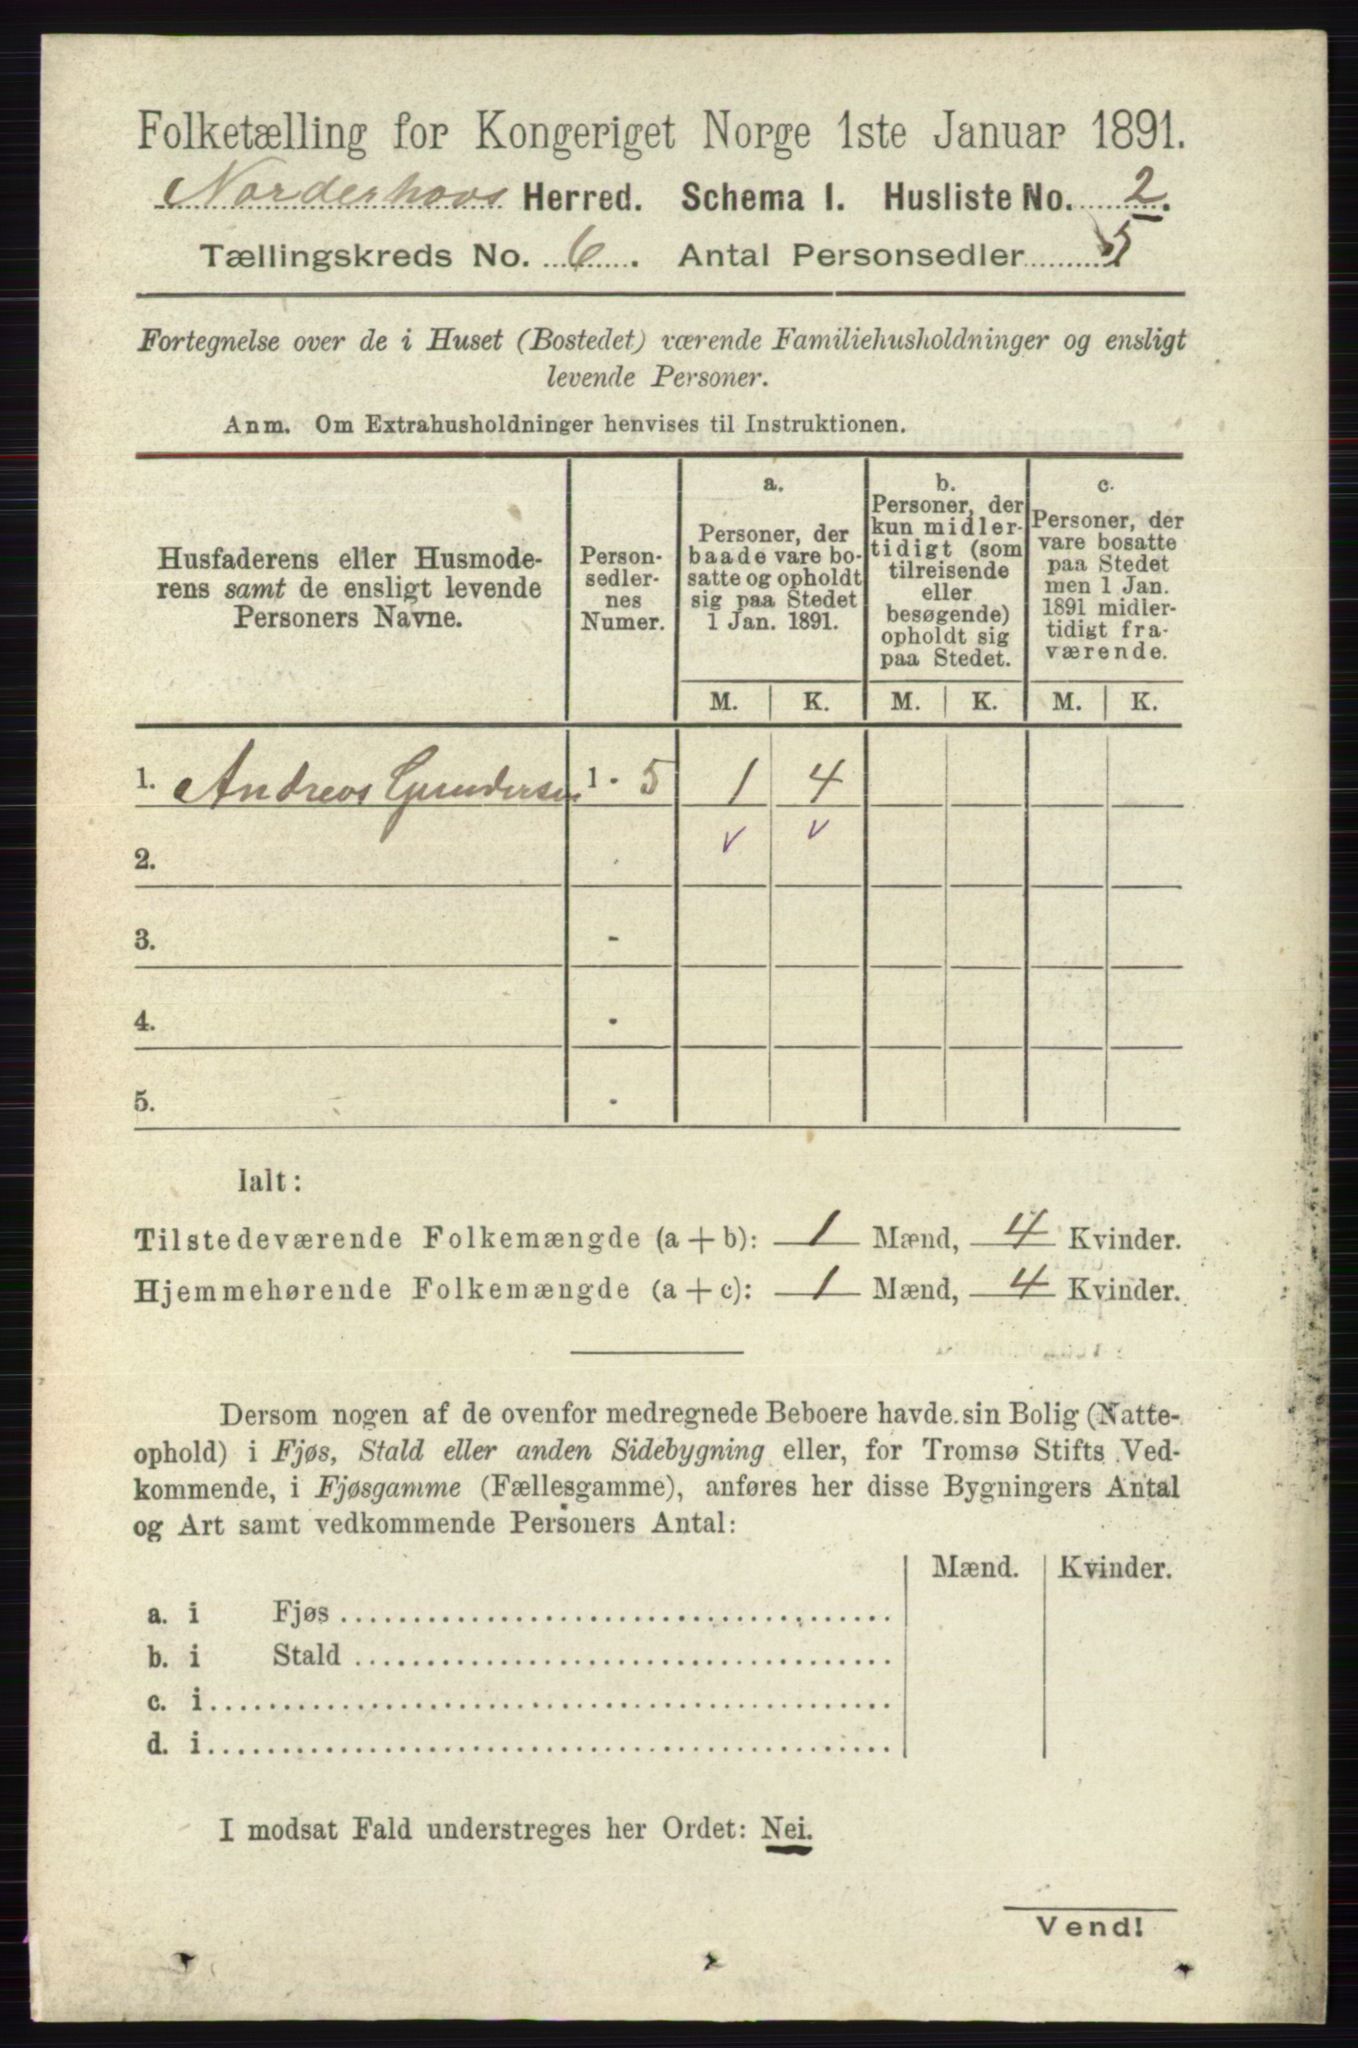 Folketælling for Kongeriget Norge 1ste Januar 1891.
Norderhovs Herred. Schema 1. Husliste No. 2.
Tællingskreds No. 6. Antal Personsedler 5
Fortegnelse over de i Huset (Bostedet) værende Familiehusholdninger og ensligt
levende Personer.
Anm. Om Extrahusholdninger henvises til Instruktionen.
Husfaderens eller Husmode-
rens samt de ensligt levende
Personers Navne.
Person-
sedler-
nes
Numer.
a.
Personer, der
baade vare bo-
satte og opholdt
sig paa Stedet
1 Jan. 1891.
b.
Personer, der
kun midler-
tidigt (som
tilreisende
eller
besøgende)
opholdt sig
paa Stedet.
c.
Personer, der
vare bosatte
paa Stedet
men 1 Jan.
1891 midler-
tidigt fra-
værende.
M. K. M. K. M. K.
1. Andreas Gundersen 1 - 5 1 4
2. v v
3. -
4. -
5. -
Ialt:
Tilstedeværende Folkemængde (a + b): 1 Mænd, 4 Kvinder.
Hjemmehørende Folkemængde (a + c): 1 Mænd, 4 Kvinder.
Dersom nogen af de ovenfor medregnede Beboere havde sin Bolig (Natte-
ophold) i Fjøs, Stald eller anden Sidebygning eller, for Tromsø Stifts Ved-
kommende, i Fjøsgamme (Fællesgamme), anføres her disse Bygningers Antal
og Art samt vedkommende Personers Antal:
Mænd. Kvinder.
a. i Fjøs
b. i Stald
c. i
d. i
I modsat Fald understreges her Ordet: Nei.
Vend!